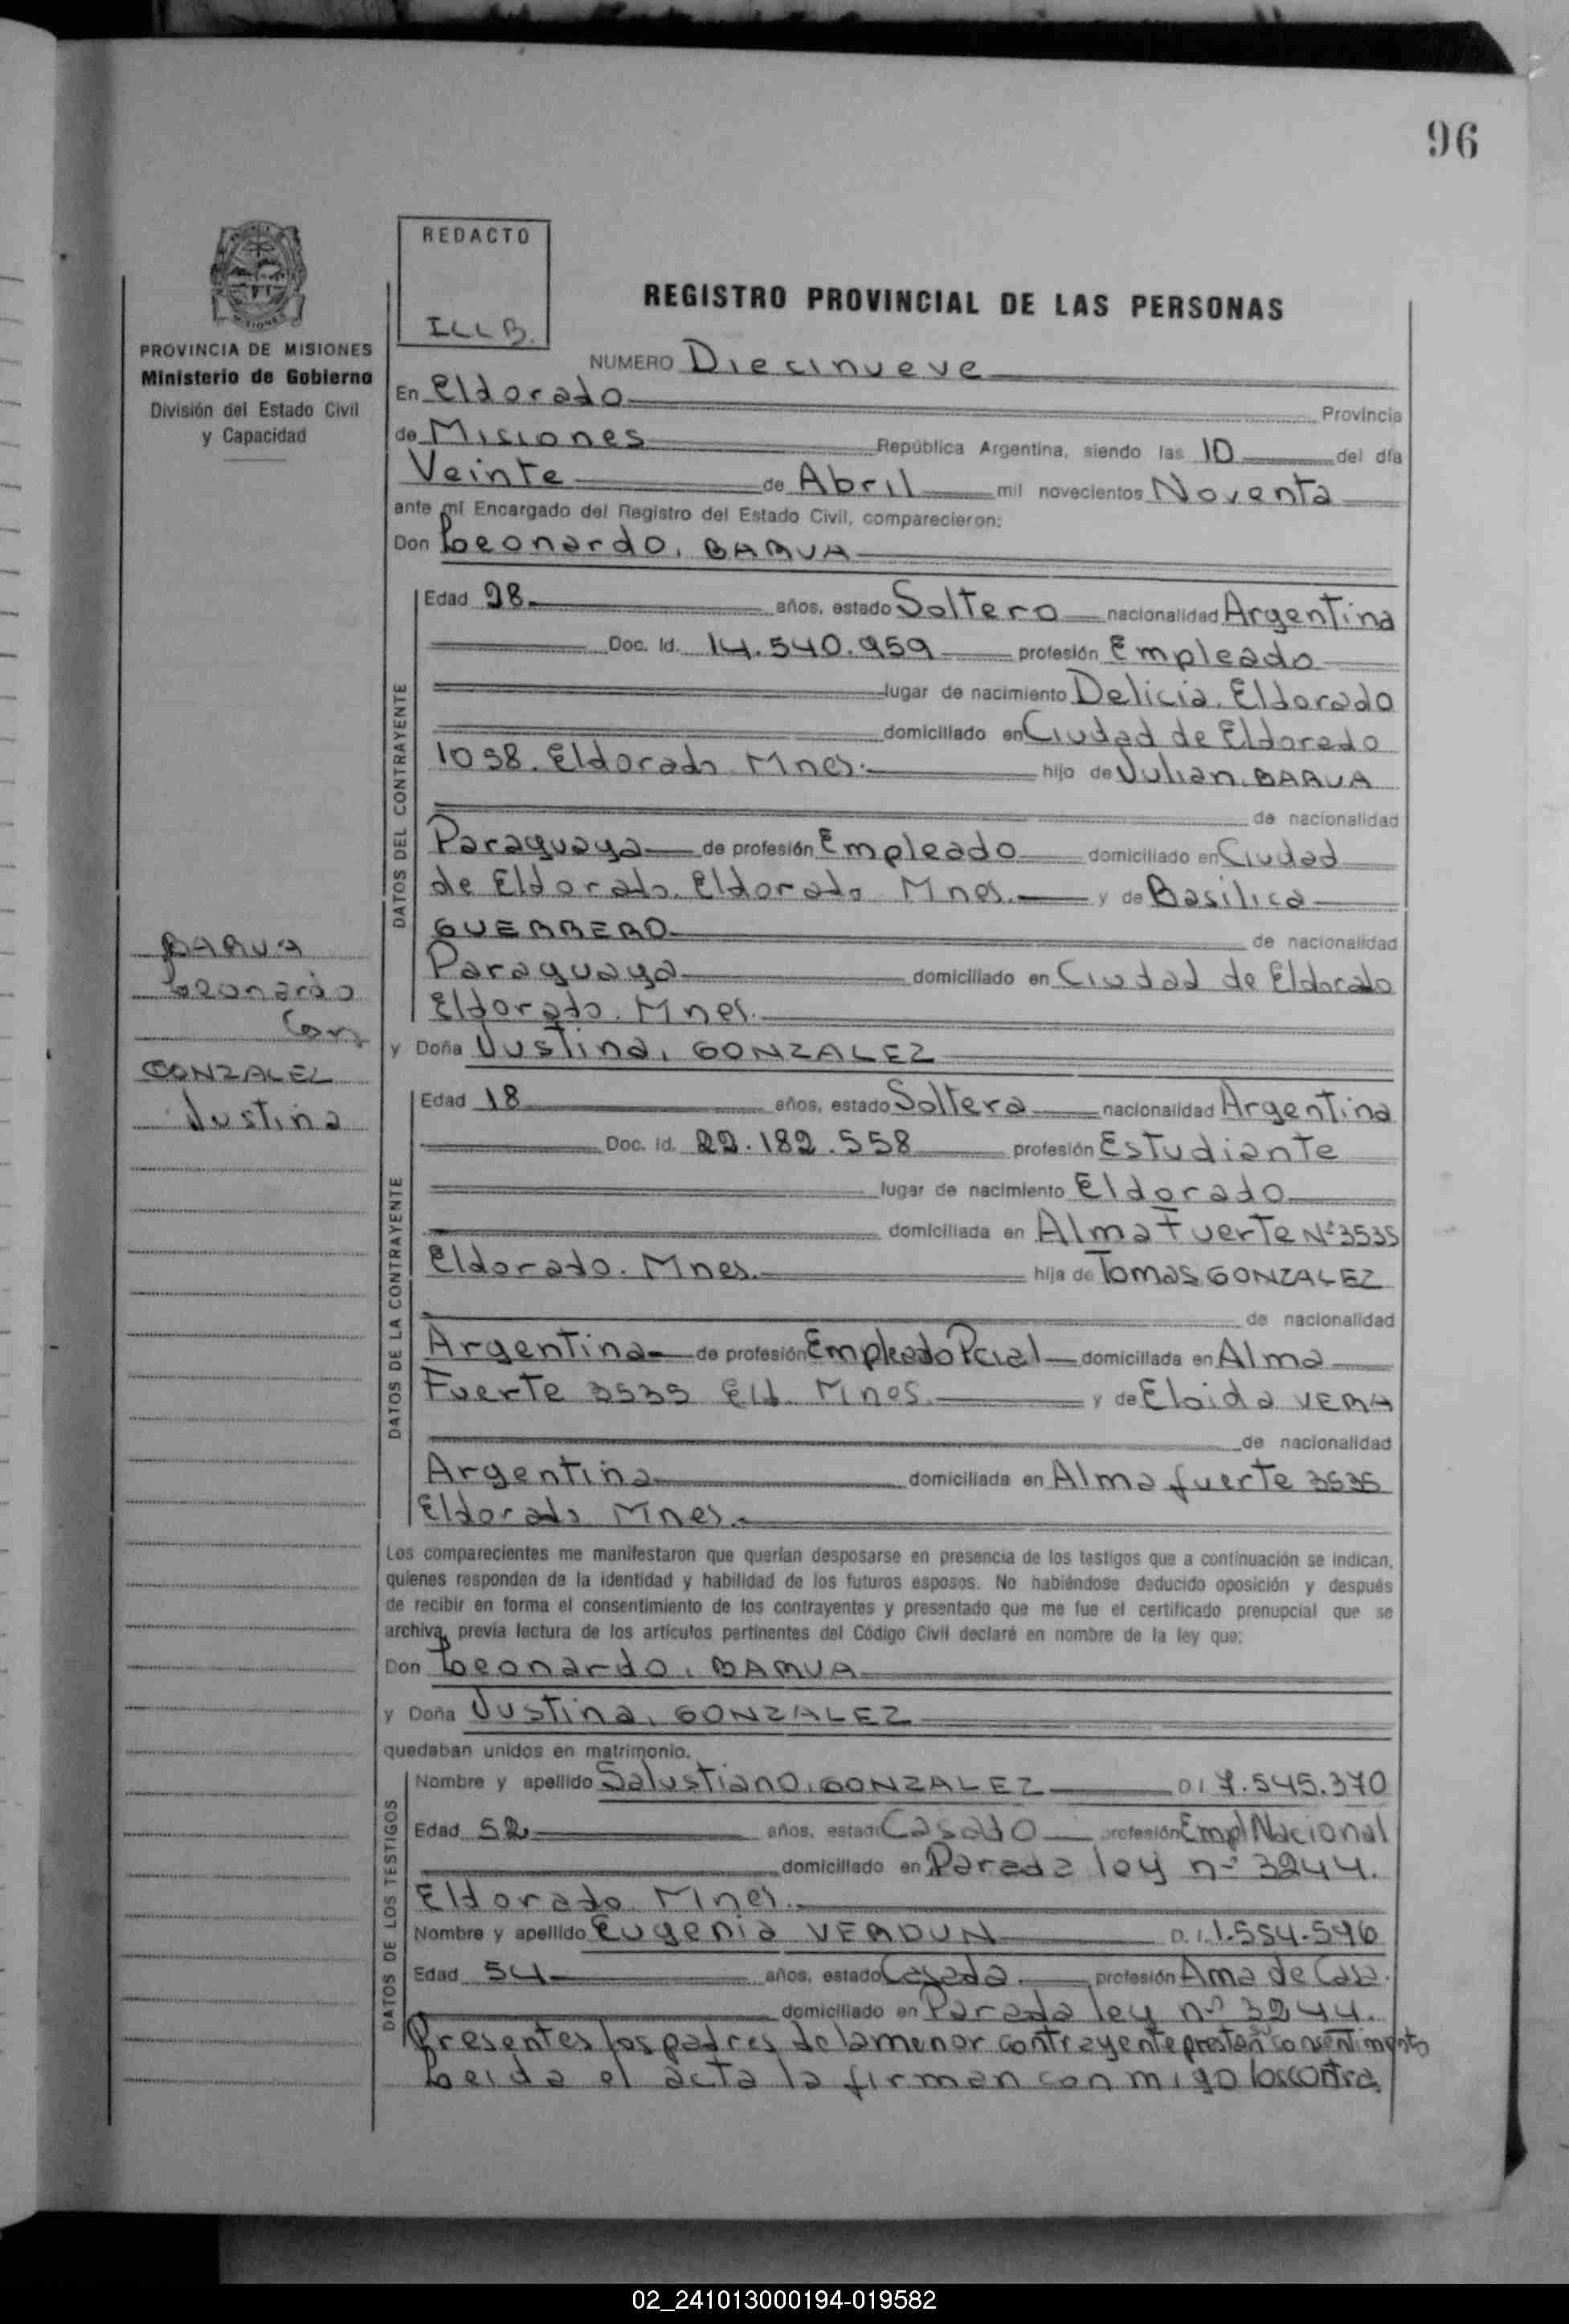 96
REDACTO
ILLB.
REGISTRO PROVINCIAL DE LAS PERSONAS
PROVINCIA DE MISIONES
Ministerio de Gobierno
División del Estado Civil
y Capacidad
NUMERO Diecinueve
En Eldorado Provincia
de Misiones República Argentina, siendo las 10 del día
Veinte de Abril mil novecientos Noventa
ante mí Encargado del Registro del Estado Civil, comparecieron:
Don Leonardo, BARUA
DATOS DEL CONTRAYENTE
Edad 28 años, estado Soltero nacionalidad Argentina
Doc. Id. 14.540.959 profesión Empleado
lugar de nacimiento Delicia. Eldorado
domiciliado en Ciudad de Eldorado
1058. Eldorado Mnes. hijo de Julian. BARUA
de nacionalidad
Paraguaya de profesión Empleado domiciliado en Ciudad
de Eldorado. Eldorado Mnes. y de Basilica
GUERRERO de nacionalidad
Paraguaya domiciliado en Ciudad de Eldorado
Eldorado. Mnes.
BARUA
Leonardo
Con
GONZALEZ
Justina
y Doña Justina, GONZALEZ
DATOS DE LA CONTRAYENTE
Edad 18 años, estado Soltera nacionalidad Argentina
Doc. Id. 22.182.558 profesión Estudiante
lugar de nacimiento Eldorado
domiciliada en Alma Fuerte Nº 3535
Eldorado. Mnes. hija de Tomas GONZALEZ
de nacionalidad
Argentina de profesión Empleado Pcial domiciliada en Alma
Fuerte 3535 Eld. Mnes. y de Eloida VERA
de nacionalidad
Argentina domiciliada en Alma fuerte 3535
Eldorado Mnes.
Los comparecientes me manifestaron que querían desposarse en presencia de los testigos que a continuación se indican,
quienes responden de la identidad y habilidad de los futuros esposos. No habiéndose deducido oposición y después
de recibir en forma el consentimiento de los contrayentes y presentado que me fue el certificado prenupcial que se
archiva, previa lectura de los artículos pertinentes del Código Civil declaré en nombre de la ley que:
Don Leonardo, BARUA
y Doña Justina, GONZALEZ
quedaban unidos en matrimonio.
DATOS DE LOS TESTIGOS
Nombre y apellido Salustiano, GONZALEZ D.I. 7.545.370
Edad 52 años, estado Casado profesión Empl Nacional
domiciliado en Parada ley nº 3244.
Eldorado Mnes.
Nombre y apellido Eugenia VERDUN D.I. 1.554.596
Edad 54 años, estado Casada. profesión Ama de Casa.
domiciliado en Parada ley nº 3244.
Presentes los padres de la menor contrayente prestan su consentimento
Leida el acta la firman con migo los contra
02_241013000194-019582